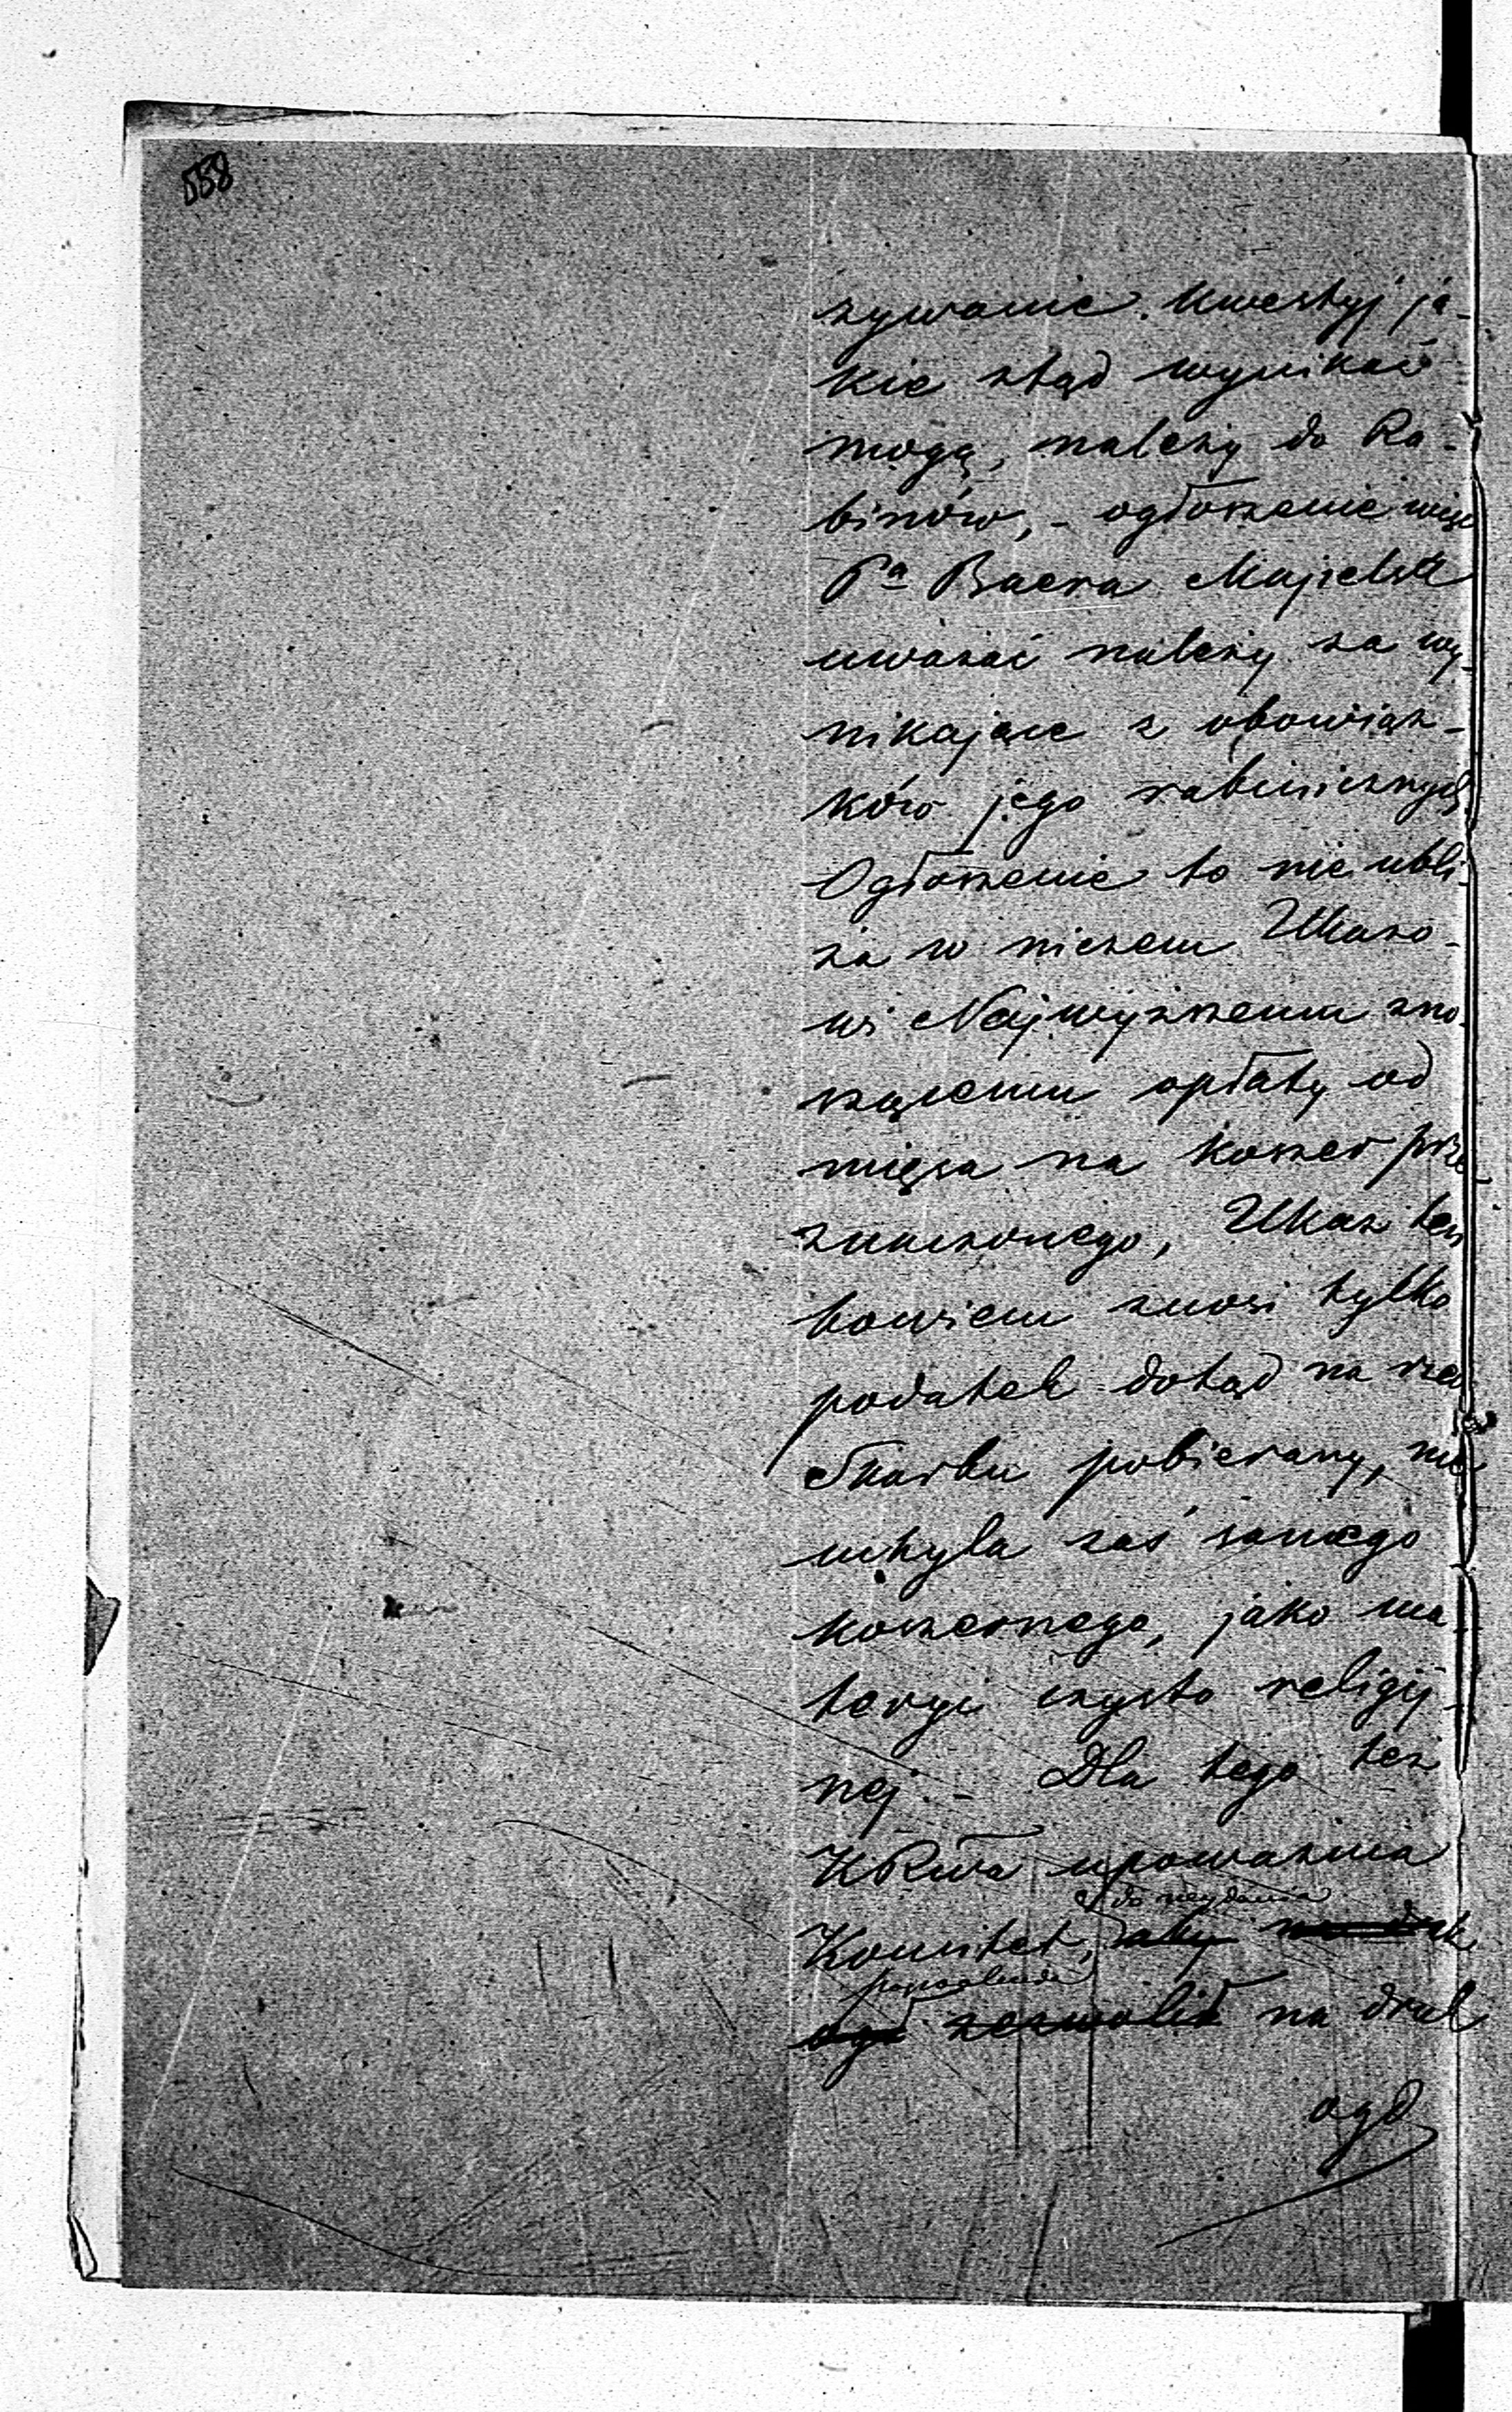 558
zywanie kwestyj ja-
kie ztąd wynikać
mogą, należy do Ra-
binów, - ogłoszenie więc
Pa Baera Majzelsa
uważać należy za wy-
nikające z obowiąz-
ków jego rabinicznych
Ogłoszenie to nie ubli-
ża w niczem Ukazo-
wi Najwyższemu zno-
szącemu opłaty od
mięsa na koszer prze-
znaczonego, Ukaz ten
bowiem znosi tylko
podatek dotąd na rzecz
Skarbu pobierany, nie
uchyla zaś samego
koszernego, jako ma-
teryi czysto religij-
nej. - Dla tego też
KRwa upoważnia
do wydania
Komitet, aby na druk
pozwolenia
ogł zezwolił na druk
ogł